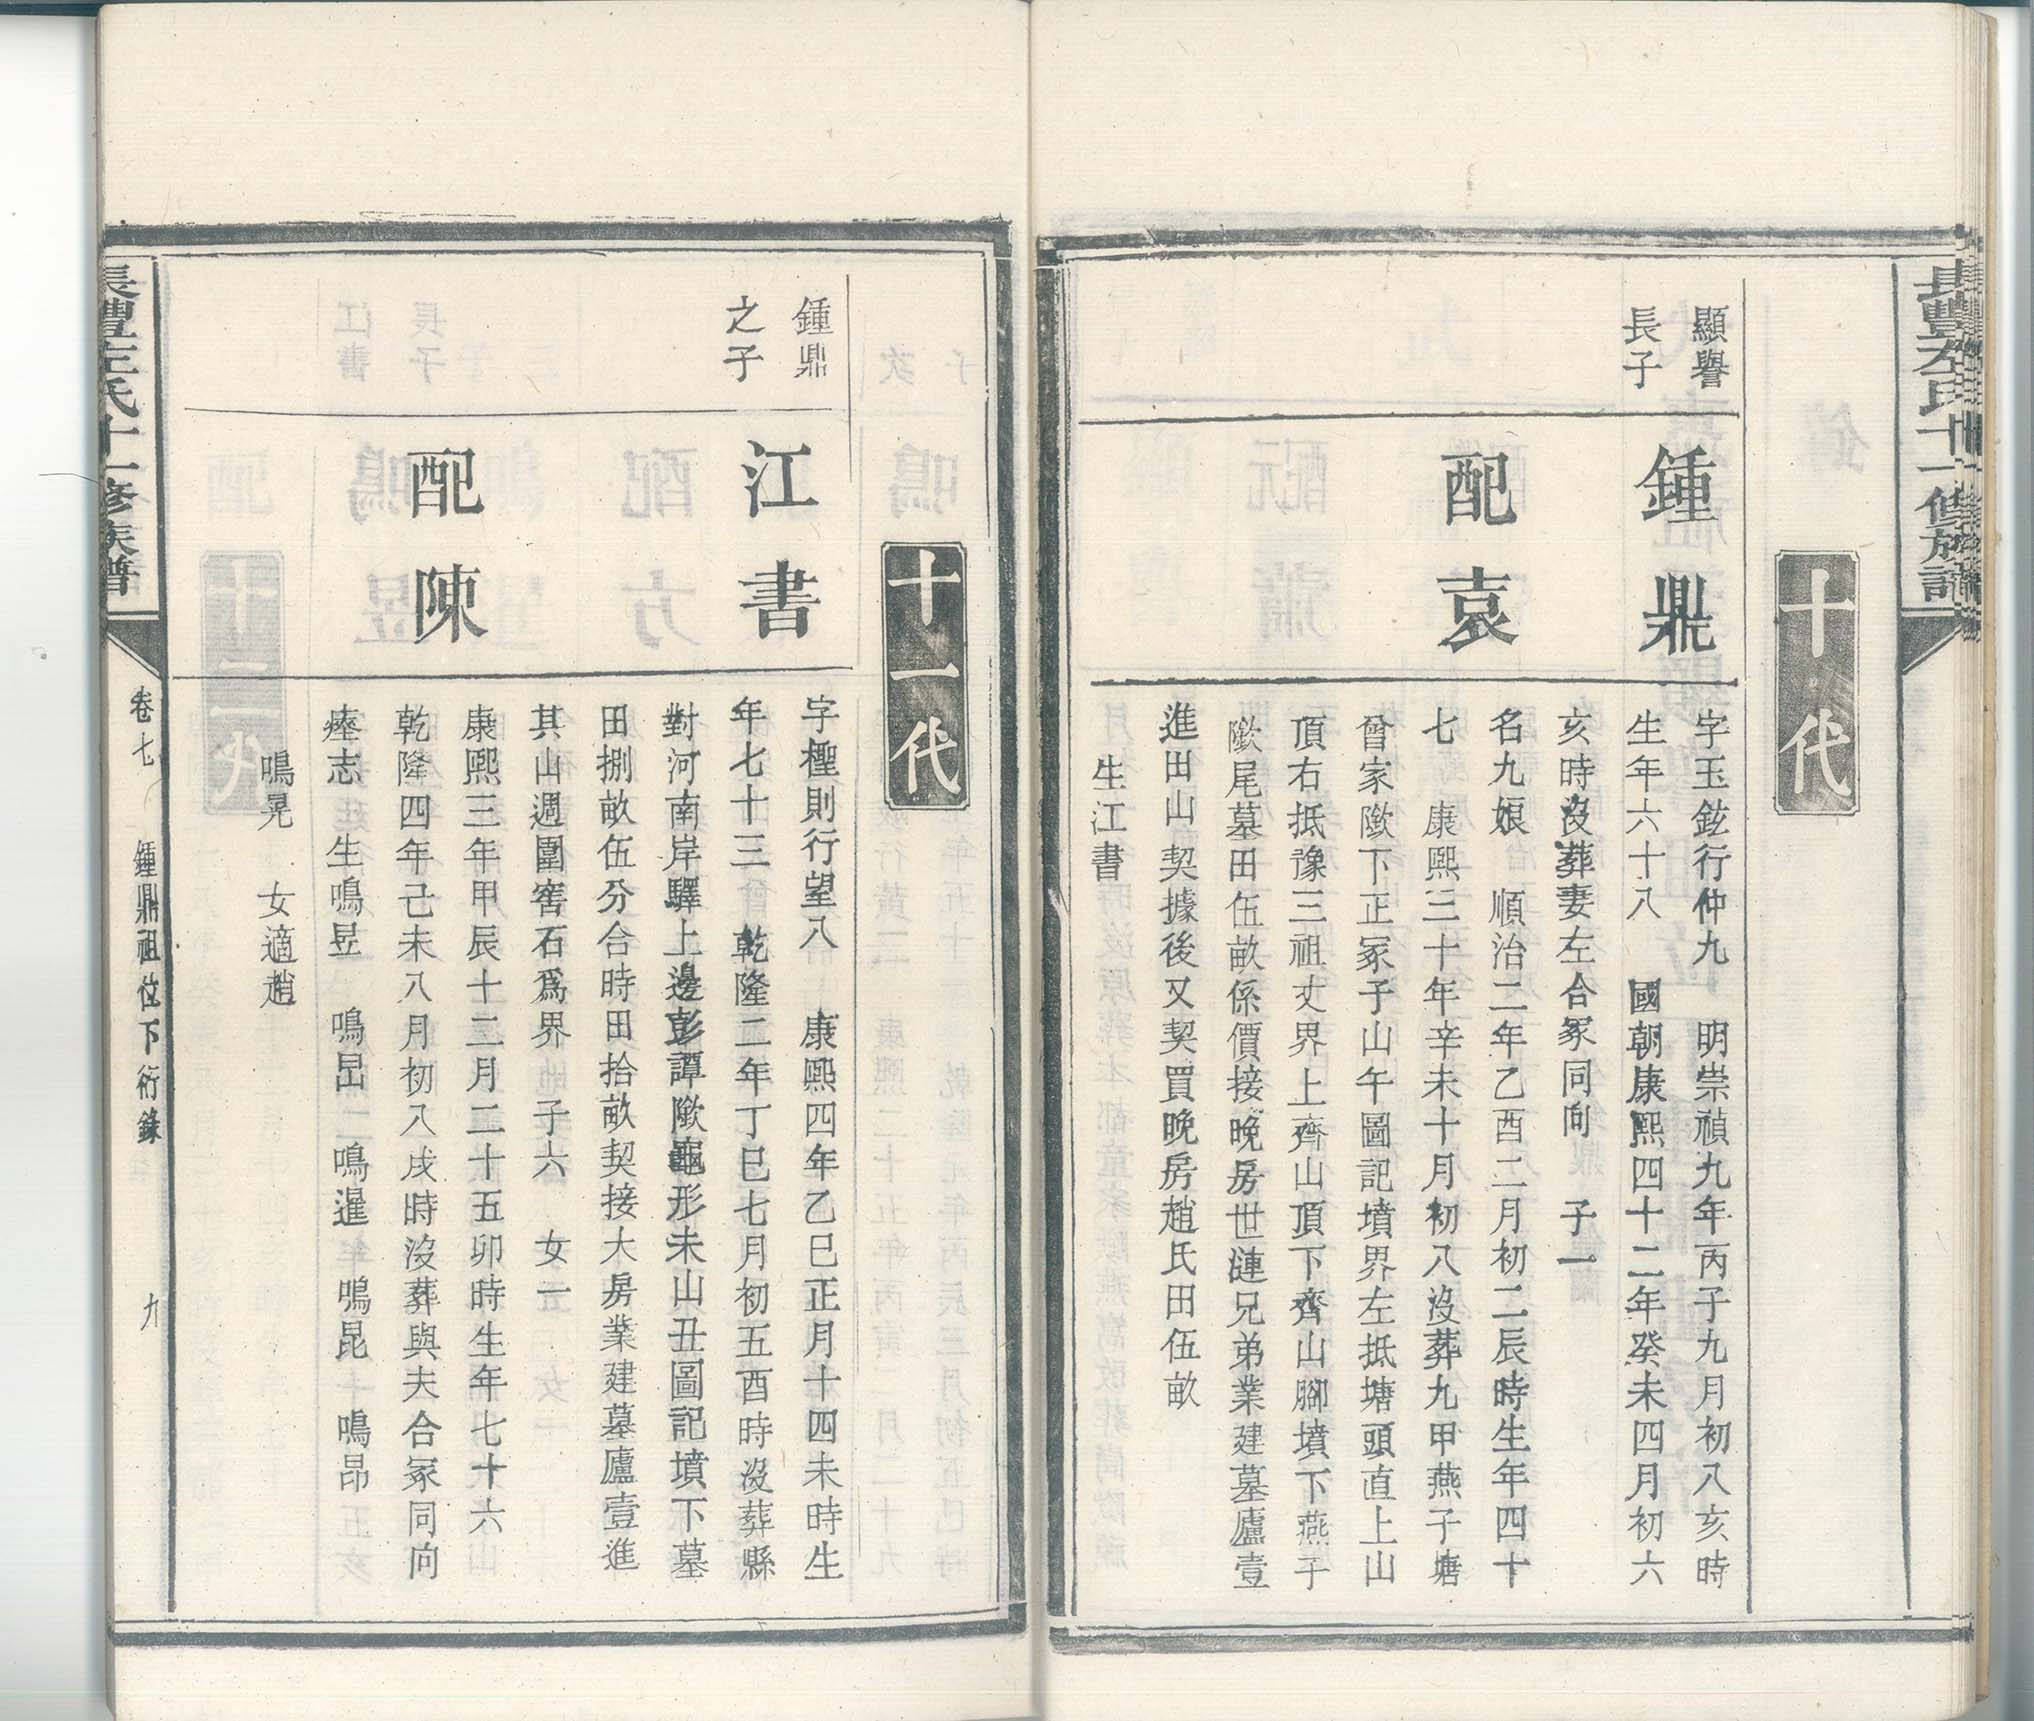 長豐左氏十一修族譜
十代
顯譽
長子
鍾鼎
字玉鉉行仲九　明崇禎九年丙子九月初八亥時
生年六十八　國朝康熙四十二年癸未四月初六
亥時沒葬妻左合冢同向　子一
配袁
名九娘　順治二年乙酉二月初二辰時生年四十
七　康熙三十年辛未十月初八沒葬九甲燕子塘
曾家墩下正冢子山午圖記墳界左抵塘頭直上山
頂右抵豫三祖丈界上齊山頂下齊山腳墳下燕子
墩尾墓田伍畝係價接晚房世漣兄弟業建墓廬壹
進田山契據後又契買晚房趙氏田伍畝
生江書
十一代
鍾鼎
之子
江書
字檉則行望八　康熙四年乙巳正月十四未時生
年七十三　乾隆二年丁巳七月初五酉時沒葬縣
對河南岸驛上邊彭譚墩龜形未山丑圖記墳下墓
田捌畝伍分合時田拾畝契接大房業建墓廬壹進
其山週圍窖石爲界　子六　女一
配陳
康熙三年甲辰十二月二十五卯時生年七十六
乾隆四年己未八月初八戌時沒葬與夫合冢同向
瘞志　生鳴昱　鳴　二鳴暹　鳴昆　鳴昂
鳴晃　女適趙
長豐左氏十一修族譜
卷七　鍾鼎祖位下衍錄　九